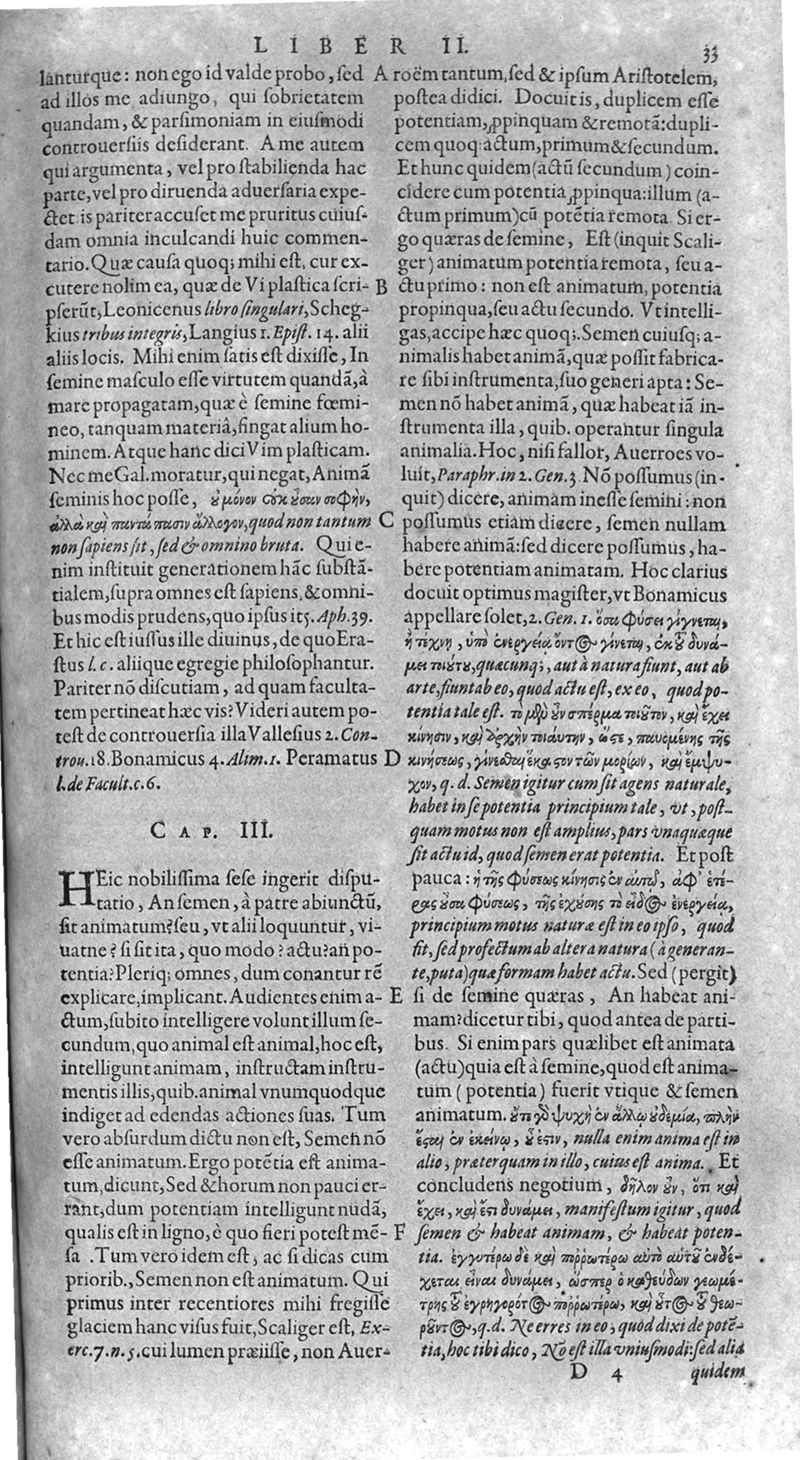 LIBER II.
33
lanturque: non ego id valde probo, sed
ad illos me adiungo, qui sobrietatem
quandam, & parsimoniam in eiusmodi
controuersiis desiderant. A me autem
qui argumenta, vel pro stabilienda hac
parte, vel pro diruenda aduersaria expe-
ctet: is pariter accuset me pruritus cuius-
dam omnia inculcandi huic commen-
tario. Quæ causa quoq; mihi est, cur ex-
cutere nolim ea, quæ de Vi plastica scri-
pserũt, Leonicenus libro singulari, Scheg-
kius tribus integris, Langius 1. Epist. 14. alii
aliis locis. Mihi enim satis est dixisse, In
semine masculo esse virtutem quandã, à
mare propagatam, quæ è semine fœmi-
neo, tanquam materiâ, fingat alium ho-
minem. Atque hanc dici Vim plasticam.
Nec me Gal. moratur, qui negat, Animã
seminis hoc posse, οὐ μόνον οὐκ οὖσαν σοφὴν,
ἀλλὰ καὶ παντάπασιν ἄλογον, quod non tantum
non sapiens sit, sed & omnino bruta. Qui e-
nim instituit generationem hãc substã-
tialem, supra omnes est sapiens, & omni-
bus modis prudens, quo ipsus it 5. Aph. 39.
Et hic est iussus ille diuinus, de quo Era-
stus l. c. aliique egregie philosophantur.
Pariter nõ discutiam, ad quam faculta-
tem pertineat hæc vis? Videri autem po-
test de controuersia illa Vallesius 2. Con-
trou. 18. Bonamicus 4. Alim. 1. Peramatus
l. de Facult. c. 6.
CAP. III.
HEic nobilissima sese ingerit dispu-
tatio, An semen, à patre abiunctũ,
sit animatum? seu, vt alii loquuntur, vi-
uatne? si sit ita, quo modo? actu? an po-
tentia? Pleriq; omnes, dum conantur rẽ
explicare, implicant. Audientes enim a-
ctum, subito intelligere volunt illum se-
cundum, quo animal est animal, hoc est,
intelligunt animam, instructam instru-
mentis illis, quib. animal vnumquodque
indiget ad edendas actiones suas. Tum
vero absurdum dictu non est, Semen nõ
esse animatum. Ergo potẽtia est anima-
tum, dicunt, Sed & horum non pauci er-
rant, dum potentiam intelligunt nudã,
qualis est in ligno, è quo fieri potest mẽ-
sa. Tum vero idem est, ac si dicas cum
priorib., Semen non est animatum. Qui
primus inter recentiores mihi fregisse
glaciem hanc visus fuit, Scaliger est, Ex-
erc. 7. n. 5. cui lumen præiisse, non Auer-
A
B
C
D
E
F
roëm tantum, sed & ipsum Aristotelem,
postea didici. Docuit is, duplicem esse
potentiam, ꝓpinquam & remotã: dupli-
cem quoq; actum, primum & secundum.
Et hunc quidem (actũ secundum) coin-
cidere cum potentia ꝓpinqua: illum (a-
ctum primum) cũ potẽtia remota. Si er-
go quæras de semine, Est (inquit Scali-
ger) animatum potentia remota, seu a-
ctu primo: non est animatum, potentia
propinqua, seu actu secundo. Vt intelli-
gas, accipe hæc quoq;. Semen cuiusq; a-
nimalis habet animã, quæ possit fabrica-
re sibi instrumenta, suo generi apta: Se-
men nõ habet animã, quæ habeat iã in-
strumenta illa, quib. operantur singula
animalia. Hoc, nisi fallor, Auerroes vo-
luit, Paraphr. in 2. Gen. 3 Nõ possumus (in-
quit) dicere, animam inesse semini: non
possumus etiam dicere, semen nullam
habere animã: sed dicere possumus, ha-
bere potentiam animatam. Hoc clarius
docuit optimus magister, vt Bonamicus
appellare solet, 2. Gen. 1. ὅσα φύσει γίγνεται,
ἢ τέχνῃ, ὑπὸ ἐνεργείᾳ ὄντος γίνεται, ἐκ τοῦ δυνά-
μει τοιούτου, quæcunq;, aut à natura fiunt, aut ab
arte, fiunt ab eo, quod actu est, ex eo, quod po-
tentia tale est. τὸ μὲν οὖν σπέρμα τοιοῦτον, καὶ ἔχει
κίνησιν, καὶ ἀρχὴν τοιαύτην, ὥστε, παυομένης τῆς
κινήσεως, γίνεσθαι ἕκαστον τῶν μορίων, καὶ ἔμψυ-
χον, q. d. Semen igitur cum sit agens naturale,
habet in se potentia principium tale, vt, post-
quam motus non est amplius, pars vnaquæque
fit actu id, quod semen erat potentia. Et post
pauca: ἡ τῆς φύσεως κίνησις ἐν αὐτῷ, ἀφ' ἑτέ-
ρας οὖσα φύσεως, τῆς ἐχούσης τὸ εἶδος ἐνεργείᾳ,
principium motus naturæ est in eo ipso, quod
fit, sed profectum ab altera natura (à generan-
te, puta) quæ formam habet actu. Sed (pergit)
si de semine quæras, An habeat ani-
mam? dicetur tibi, quod antea de parti-
bus. Si enim pars quælibet est animata
(actu) quia est à semine, quod est anima-
tum (potentia) fuerit vtique & semen
animatum. οὔτε γὰρ ψυχὴ ἐν ἄλλῳ οὐδεμία, πλὴν
ἔσται ἐν ἐκείνῳ, οὗ ἐστιν, nulla enim anima est in
alio, præterquam in illo, cuius est anima. Et
concludens negotium, δῆλον οὖν, ὅτι καὶ
ἔχει, καὶ ἔστι δυνάμει, manifestum igitur, quod
semen & habeat animam, & habeat poten-
tia. ἐγγυτέρω δὲ καὶ πορρωτέρω αὐτὸ αὑτοῦ ἐνδέ-
χεται εἶναι δυνάμει, ὥσπερ ὁ καθεύδων γεωμέ-
τρης τοῦ ἐγρηγορότος πορρωτέρω, καὶ οὗτος τοῦ θεω-
ροῦντος, q. d. Ne erres in eo, quod dixi de potẽ-
tia, hoc tibi dico, Nõ est illa vniusmodi: sed alia
D 4
quidem